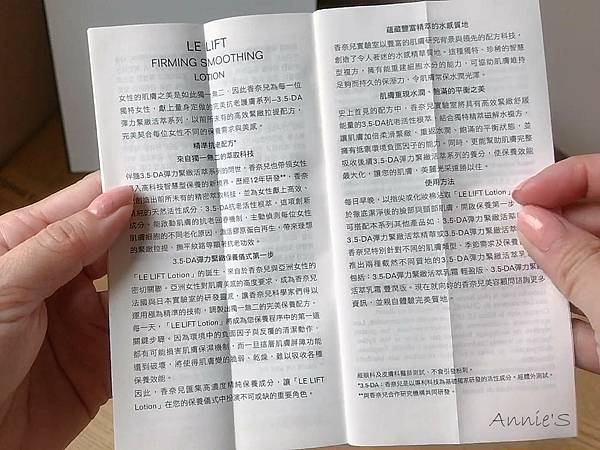 LE LIFT
FIRMING SMOOTHING
LOTION
女性的肌膚之美是如此獨一無二，因此香奈兒為每一位
獨特女性，獻上量身定做的完美抗老護膚系列—3.5-DA
彈力緊緻活萃系列，以前所未有的高效緊緻拉提配方，
完美契合每位女性不同的保養需求與美感。
精準抗老配方*
來自獨一無二的萃取科技
伴隨3.5-DA彈力緊緻活萃系列的問世，香奈兒也帶領女性
入高科技智慧型保養的新境界。歷經12年研發**，香奈
創造出前所未有的精密萃取科技，並為女性獻上高效、
純的天然活性成分：3.5-DA抗老活性根萃。這項創新
成分，能啟動肌膚的抗老回春機制，主動偵測每位女性
肌膚細胞的不同老化原因，激活膠原蛋白再生，帶來理想
的緊緻拉提、撫平紋路等顯著抗老功效。
3.5-DA彈力緊緻保養儀式第一步
「LE LIFT Lotion」的誕生，來自於香奈兒與亞洲女性的
密切關聯。亞洲女性對肌膚美感的高度要求，成為香奈兒
法國與日本實驗室的研發靈感，讓香奈兒科學家們得以
運用極為精準的技術，調製出獨一無二的完美保養配方。
每一天，「LE LIFT Lotion」將成為您保養程序中的第一道
關鍵步驟。因為環境中的負面因子與反覆的清潔動作，
都有可能損害肌膚保濕機制，而一旦這層肌膚屏障功能
遭到破壞，將使得肌膚變的脆弱、乾燥，難以吸收各種
保養效能。
因此，香奈兒匯集高濃度精純保養成分，讓「LE LIFT
Lotion」在您的保養儀式中扮演不可或缺的重要角色。
蘊藏豐富精萃的水感質地
香奈兒實驗室以豐富的肌膚研究背景與領先的配方科技，
創造了令人著迷的水感精華質地。這種獨特、珍稀的智慧
型複方，擁有能重建細胞水分的能力，可協助肌膚維持
足夠而持久的保溼力，令肌膚常保水潤光澤。
肌膚重現水潤、飽滿的平衡之美
史上首見的配方中，香奈兒實驗室將具有高效緊緻舒緩
能量的3.5-DA抗老活性根萃，結合獨特精萃磁解水複方，
讓肌膚加倍柔滑緊緻，重返水潤、飽滿的平衡狀態，並
擁有抵禦環境負面因子的能力。同時，更能幫助肌膚完整
吸收後續3.5-DA彈力緊緻活萃系列的養分，使保養效能
最大化，讓您的肌膚，美麗光采遠勝以往。
使用方法
每日早晚，以指尖或化妝棉沾取「LE LIFT Lotion」
於徹底潔淨後的臉部與頸部肌膚，開啟保養第一步
可搭配本系列其他產品如：3.5-DA彈力緊緻活萃精
或3.5-DA彈力緊緻活萃精華或3.5-DA彈力緊緻活萃
香奈兒特別針對不同的肌膚類型、季節需求及保養
推出兩種截然不同質地的3.5-DA彈力緊緻活萃乳霜
包括：3.5-DA彈力緊緻活萃乳霜 輕盈版、3.5-DA彈力
活萃乳霜 豐潤版。現在就向妳的香奈兒美容顧問諮詢更多
資訊，並親自體驗完美質地。
經眼科及皮膚科醫師測試，不會引發粉刺。
*3.5-DA：香奈兒是以專利科技為基礎獨家研發的活性成分。經體外測試。
**與香奈兒合作研究機構共同研發。
Annie'S